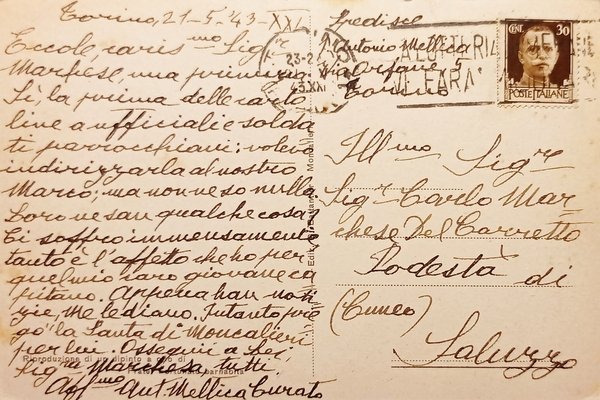 Torino, 21-5-43-XXI
Eccole, caris.mo Sig.r
Marchese, una primizia
Sì, la prima delle carto
line a ufficiali e solda
ti parrocchiani: volevo
indirizzarla al nostro
Marco; ma non ne so nulla
Loro ne san qualche cosa?
Ci soffro immensamente
tanto è l'affetto che ho per
quel mio caro giovane ca
pitano. Appena han noti
zie, me le diano. Intanto pre
go "la Santa di Moncalieri"
per lui. Ossequi a Lei
Sig.ra Marchesa tutti.
Aff.mo Ant. Mellica Curato
Riproduzione di un dipinto a olio di
barnabita
Spedisce
Antonio Mellica
Via Orfane
Torino
23-
43.XXI
LA
FARÀ
CENT. 30
POSTE ITALIANE
Moncalieri
Ill.mo Sig.re
Sig.r Carlo Mar-
chese Del Carretto
Podestà di
(Cuneo)
Saluzzo